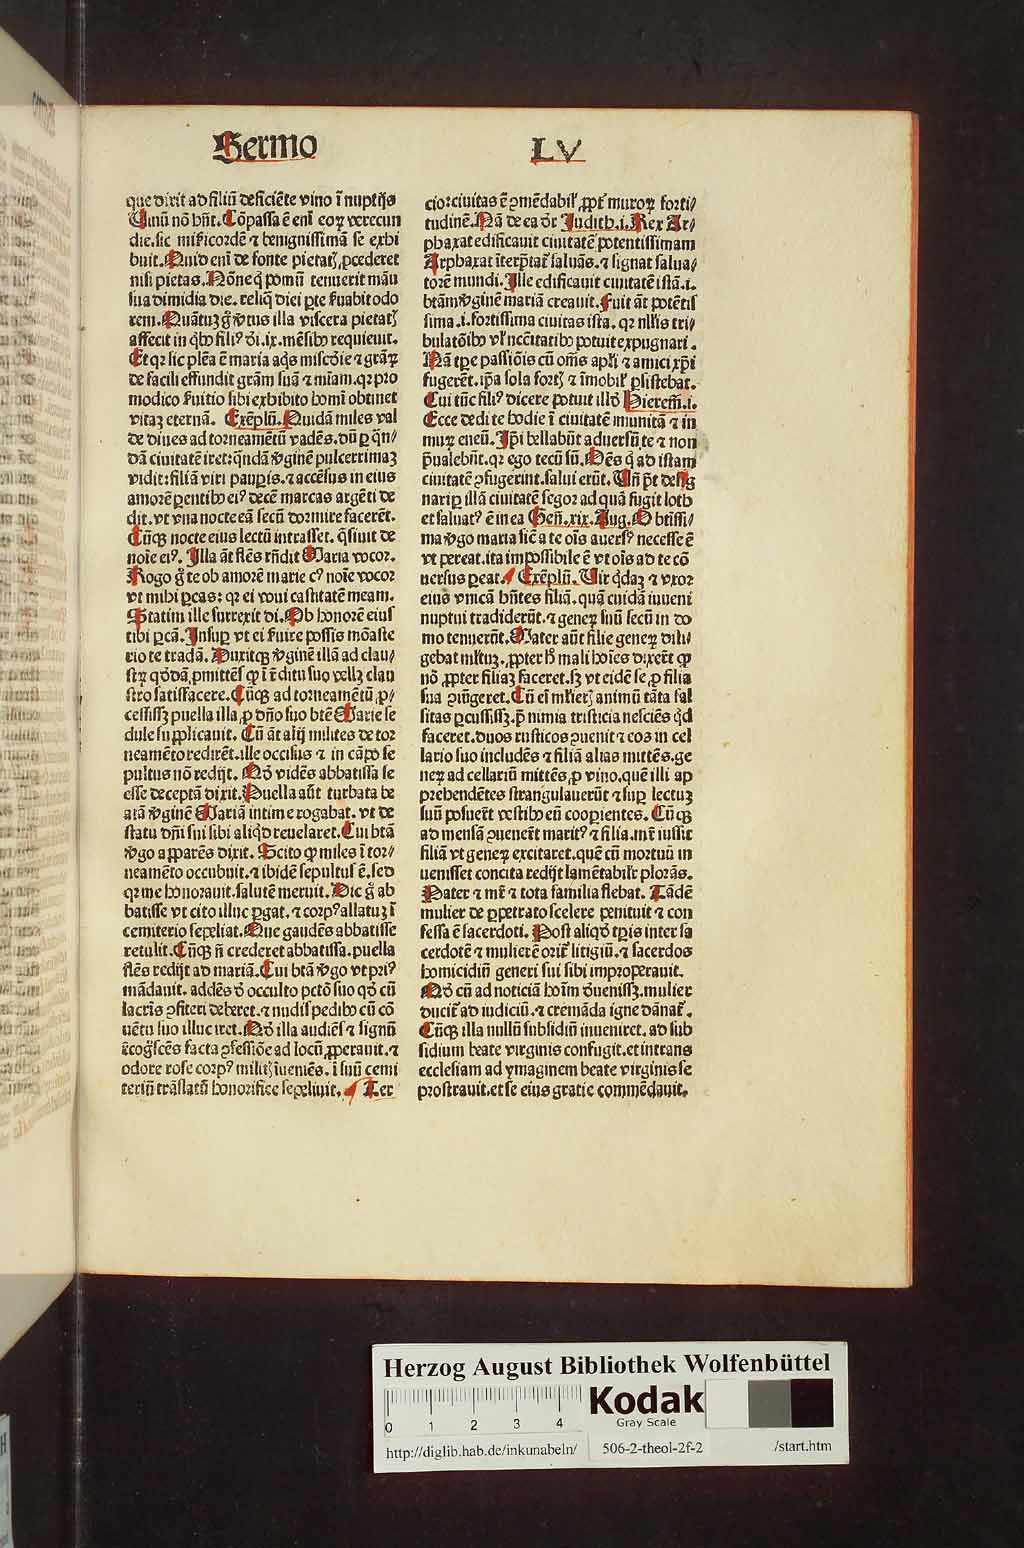 Sermo
LV
que dixit ad filiū deficiēte vino ī nuptijs
Uinū nō hn̄t. Cōpassa ē eni coꝝ verecun
die. sic mīcordē ⁊ benignissimā se exhi
buit. Quid enī de fonte pietatꝭ ꝓcederet
nisi pietas. Nōneq̨ pomū tenuerit māu
sua dimidia die. reliq̄ diei ꝑte ẜuabit odo
rem. Quātuꝫ g̊ ꝟtus illa viscera pietatꝭ
affecit in q̄bꝰ filiꝰ dī. ix. mēsibꝰ requieuit.
Et qꝛ sic plēa ē maria aq̄s miscdīe ⁊ grāꝝ
de facili effundit grām suā ⁊ miam. qꝛ pro
modico ẜuitio sibi exhibito homī obtinet
vitaꝫ eternā. Exēplū. Quidā miles val
de diues ad torneamētū vadēs. dū ꝑ qn̄/
dā ciuitatē iret: qndā ꝟginē pulcerrimaꝫ
vidit: filiā viri pauꝑis. ⁊ accēsus in eius
amorē ꝑentibꝰ eiꝰ decē marcas argēti de
dit. vt vna nocte eā secū dormire facerēt.
Cūqꝫ nocte eius lectū intrasset. q̄siuit de
noīe eiꝰ. Illa āt flēs rn̄dit Maria vocor.
Rogo g̊ te ob amorē marie cꝰ noīe vocor
vt mihi ꝑcas: qꝛ ei voui castitatē meam.
Statim ille surrexit dī. Ob honorē eius
tibi ꝑcā. Insuꝑ vt ei ẜuire possis mōaste
rio te tradā. Duxitqꝫ ꝟginē illā ad clau/
stꝝ qd̓dā, ꝓmittēs ꝙ ī r̄ditu suo vellꝫ clau
stro satisfacere. Cūqꝫ ad torneamētū ꝓ/
cessissꝫ puella illa, ꝓ dn̄o suo btē Marie se
dule supplicauit. Cū āt alij milites de tor
neamēto redirēt. ille occisus ⁊ in cāpo se
pultus nō redijt. Qd̓ vidēs abbatissa se
esse deceptā dixit. Puella aūt turbata be
atā ꝟginē Mariā intime rogabat. vt de
statu dn̄i sui sibi aliqd̓ reuelaret. Cui btā
ꝟgo apparēs dixit. Scito ꝙ miles ī tor/
neamēto occubuit. ⁊ ibidē sepultus ē. sed
qꝛ me honorauit. salutē meruit. Dic g̊ ab
batisse vt cito illuc ꝑgat. ⁊ corpꝰ allatuꝫ ī
cemiterio sepeliat. Que gaudēs abbatisse
retulit. Cūqꝫ n̄ crederet abbatissa. puella
flēs redijt ad mariā. Cui btā ꝟgo vt priꝰ
mādauit. addēs d̓ occulto pctō suo qd̓ cū
lacrīs ꝯfiteri deberet. ⁊ nudis pedibꝰ cū cō
uētu suo illuc iret. Qd̓ illa audiēs ⁊ signū
ꝛcogscēs facta ꝯfessiōe ad locū ꝓperauit. ⁊
odore rose corpꝰ militꝭ īueniēs. ī suū cemi
teriū trāslatū honorifice sepeliuit. Ter
cio: ciuitas ē ꝯmēdabil̓, ꝓpt̓ muroꝝ forti/
tudinē. Nā de ea dr̄ Judith. i. Rex Ar/
phaxat edificauit ciuitatē potentissimam
Arphaxat īterp̄tat̓ saluās. ⁊ signat salua/
torē mundi. Ille edificauit ciuitatē istā. i.
btām ꝟginē mariā creauit. Fuit āt potētis
sima. i. fortissima ciuitas ista. qꝛ nllīs tri/
bulatōibꝰ vl̓ incētatibꝰ potuit expugnari.
Nā tp̄e passiōis cū om̄s apl̓i ⁊ amici xp̄i
fugerēt. ip̄a sola fortꝭ ⁊ īmobil̓ ꝑsistebat.
Cui tūc filiꝰ dicere potuit illd̓ Hierem̄. i.
Ecce dedi te hodie ī ciuitatē munitā ⁊ in
muꝝ eneū. Ip̄i bellabūt aduersū te ⁊ non
p̄ualebūt. qꝛ ego tecū sū. Oēs q̄ ad istam
ciuitatē ꝯfugerint. salui erūt. Un̄ p̄t desig
nari ꝑ illā ciuitatē segor ad quā fugit loth
et saluatꝰ ē in ea Gen̄. xix. Aug. O btissi/
ma ꝟgo maria sic̄ a te ois auersꝰ necesse ē
vt pereat. ita impossibile ē vt ois ad te cō
uersus ꝑeat. Exēplū. Uir qdaꝫ ⁊ vxor
eius vnicā hn̄tes filiā. quā cuidā iuueni
nuptui tradiderūt. ⁊ geneꝝ suū secū in do
mo tenuerūt. Mater aūt filie geneꝝ dili/
gebat ml̓tuꝫ. ꝓpter hꝰ mali hoīes dixerūt ꝙ
nō, ꝓpter filiaꝫ faceret. sꝫ vt eidē se, ꝓ filia
sua ꝯiūgeret. Cū eī ml̓ieꝝ animū tāta fal
sitas ꝑcussissꝫ. p̄ nimia tristicia nesciēs qd̓
faceret. duos rusticos ꝯuenit ⁊ eos in cel
lario suo includēs ⁊ filiā alias mittēs. ge
neꝝ ad cellariū mittēs, ꝓ vino. quē illi ap
prehendētes strangulauerūt ⁊ suꝑ lectuꝫ
suū posuerūt vestibꝰ eū cooꝑientes. Cūqꝫ
ad mensā ꝯuenerūt maritꝰ ⁊ filia. mr̄ iussit
filiā vt geneꝝ excitaret. quē cū mortuū in
uenisset concita redijt lamētabilr̄ plorās.
Pater ⁊ mr̄ ⁊ tota familia flebat. Tādē
mulier de ꝑpetrato scelere penituit ⁊ con
fessa ē sacerdoti. Post aliqd̓ tꝑis inter sa
cerdotē ⁊ mulierē orit̓ litigiū. ⁊ sacerdos
homicidiū generi sui sibi improperauit.
Qd̓ cū ad noticiā hoīm deuenissꝫ. mulier
ducit̓ ad iudiciū. ⁊ cremāda igne dānat̓.
Cūqꝫ illa nullū subsidiū inueniret. ad sub
sidium beate virginis confugit. et intrans
ecclesiam ad ymaginem beate virginis se
prostrauit. et se eius gratie commēdauit.
Herzog August Bibliothek Wolfenbüttel
0 1 2 3 4
Kodak
Gray Scale
http://diglib.hab.de/inkunabeln/ 506-2-theol-2f-2 /start.htm